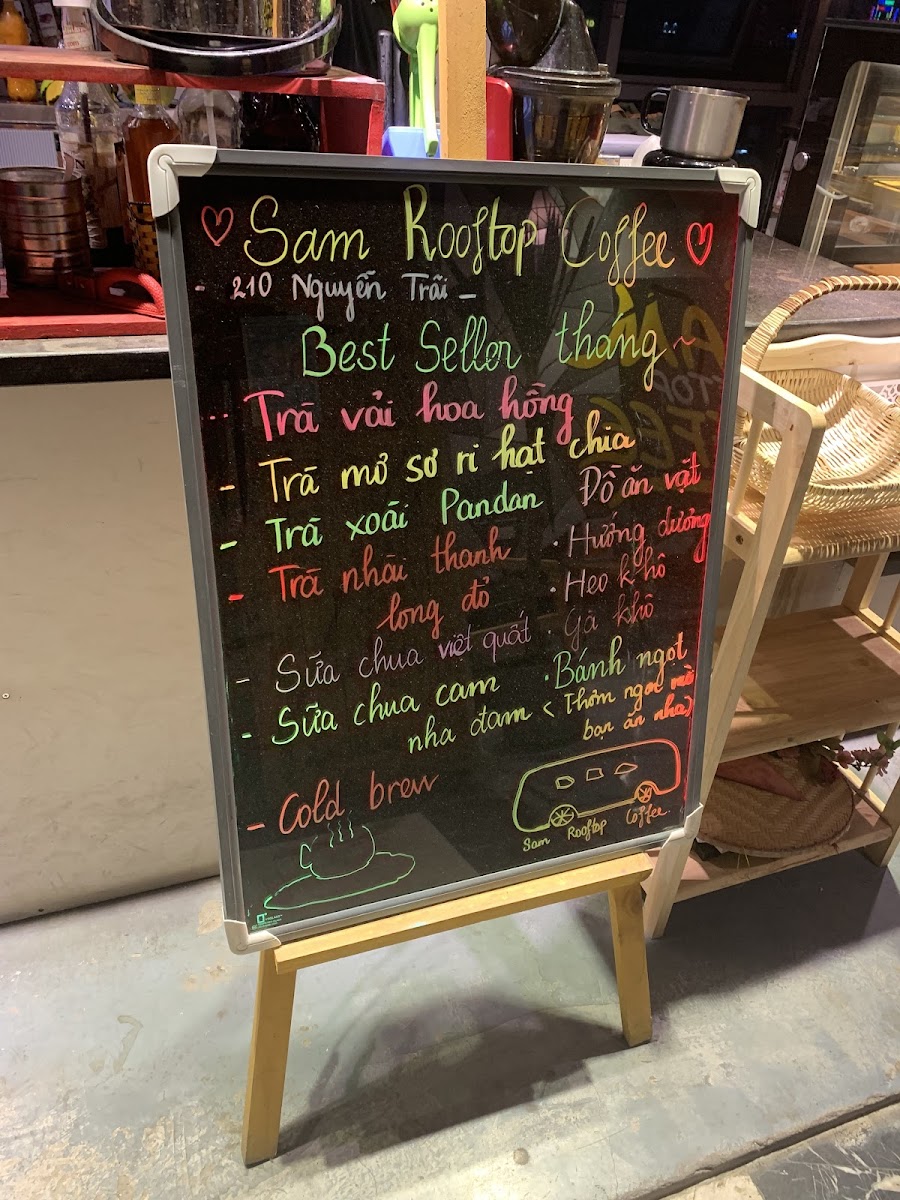 Sam Rooftop Coffee
- 210 Nguyễn Trãi -
Best Seller tháng ~
- Trà vải hoa hồng
- Trà mơ sơ ri hạt chia
- Trà xoài Pandan
- Trà nhài thanh
long đỏ
- Sữa chua việt quất
- Sữa chua cam
nha đam
- Cold brew
Đồ ăn vặt
· Hướng dương
· Heo khô
· Gà khô
· Bánh ngọt
(Thơm ngon mời
bạn ăn nha)
Sam Rooftop Coffee